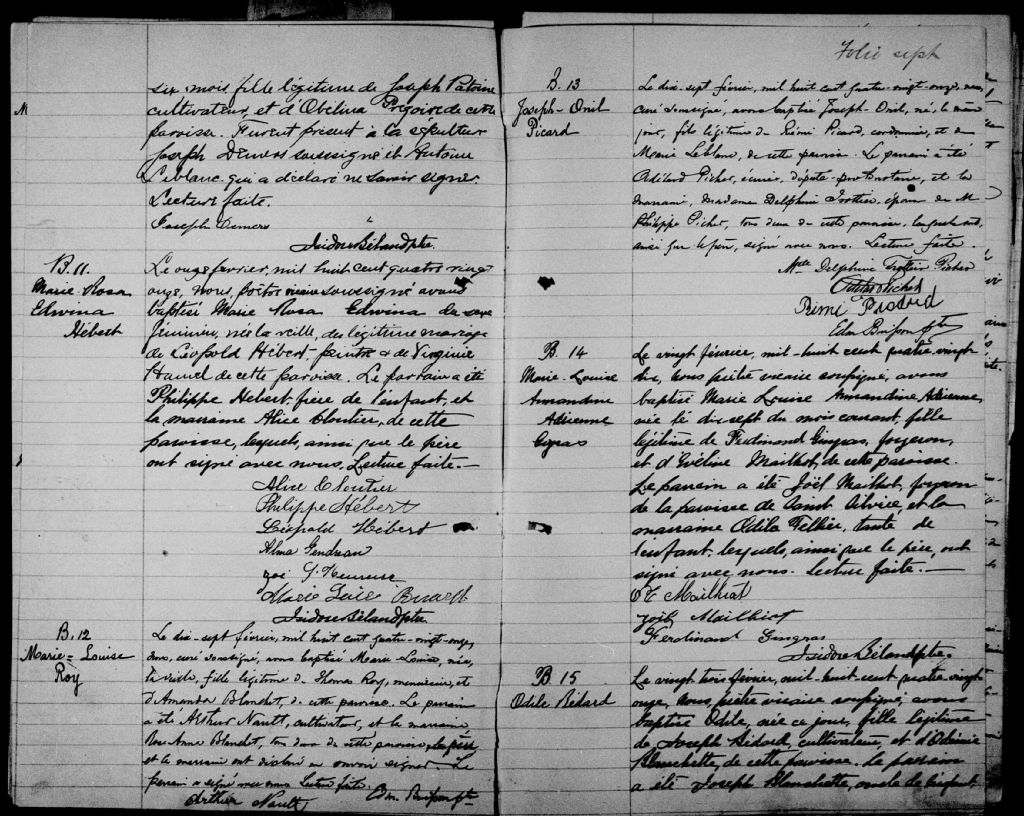 six mois, fille légitime de Joseph Patoine
cultivateur, et d'Obelina Prégoire de cette
paroisse. Furent présent à la sépulture
Joseph Demers soussigné et Antoine
Leblanc qui a déclaré ne savoir signer.
Lecture faite.
Joseph Demers
Isidore Béland ptre.
B. 11.
Marie Rosa
Edwina
Hébert
Le onze fevrier, mil huit cent quatre vingt
onze, nous, prêtre vicaire soussigné avons
baptisé Marie Rosa Edwina du sexe
féminin, née la veille, du légitime mariage
de Léopold Hébert, peintre & de Virginie
Hamel de cette paroisse. Le parrain a été
Philippe Hébert, frère de l'enfant, et
la marraine Alice Cloutier, de cette
paroisse, lesquels, ainsi que le père
ont signé avec nous. Lecture faite.—
Alice Cloutier
Philippe Hébert
Léopold Hébert
Alma Gendreau
Zoé L'Heureux
Marie
Isidore Béland ptre
B. 12
Marie-Louise
Roy
Le dix-sept février, mil huit cent quatre-vingt-onze,
nous, curé soussigné, avons baptisé Marie-Louise, née,
la veille, fille légitime de Thomas Roy, menuisier, et
D'Amanda Blanchet, de cette paroisse. Le parrain
a été Arthur Nault, cultivateur, et la marraine
Rose Anna Blanchet, tous deux de cette paroisse, le père
et la marraine ont déclaré ne savoir signer. Le
parrain a signé avec nous. Lecture faite.
Arthur Nault Edm. Buisson ptre
Folio sept
B. 13
Joseph-Onil
Picard
Le dix-sept février, mil huit cent quatre-vingt-onze, nous,
curé soussigné, avons baptisé Joseph Onil, né, le même
jour, fils légitime de Rémi Picard, cordonnier, et de
Marie Leblanc, de cette paroisse. Le parrain a été
Adélard Picher, écuier, député-protonotaire, et la
marraine, madame Delphine Trottier, épouse de M
Philippe Picher, tous deux de cette paroisse, lesquels ont,
ainsi que le père, signé avec nous. Lecture faite.
Delphine Trottier Picher
Picher
Rémi Picard
Edm Buisson ptre
B. 14
Marie-Louise
Amandine
Adrienne
Gingras
Le vingt février, mil-huit cent quatre vingt
onze, nous prêtre vicaire soussigné, avons
baptisé Marie Louise Amandine Adrienne,
née le dix sept du mois courant, fille
légitime de Ferdinand Gingras, forgeron,
et d'Evéline Mailhot, de cette paroisse.
Le parrain a été Joël Mailhot, forgeron
de la paroisse de Saint et la
marraine Odila Tellier, tante de
l'enfant, lesquels, ainsi que le père, ont
signé avec nous. Lecture faite.—
Mailhiot
Joël Mailhiot
Ferdinand Gingras
Isidore Béland ptre
B 15
Odile Bédard
Le vingt trois février, mil-huit-cent quatre vingt
onze, nous prêtre vicaire soussigné, avons
baptisé Odile, née ce jour, fille légitime
de Joseph Bédard, cultivateur, et d'
Blanchette, de cette paroisse. Le parrain
a été Joseph Blanchette, oncle de l'enfant,